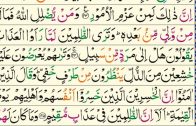 إِنَّ ذَٰلِكَ لَمِنْ عَزْمِ الْأُمُورِ وَمَن يُضْلِلِ اللَّهُ فَمَا لَهُ
مِن وَلِيٍّ مِّن بَعْدِهِ وَتَرَى الظَّالِمِينَ لَمَّا رَأَوُا الْعَذَابَ
يَقُولُونَ هَلْ إِلَىٰ مَرَدٍّ مِّن سَبِيلٍ وَتَرَاهُمْ يُعْرَضُونَ عَلَيْهَا
خَاشِعِينَ مِنَ الذُّلِّ يَنظُرُونَ مِن طَرْفٍ خَفِيٍّ وَقَالَ الَّذِينَ
آمَنُوا إِنَّ الْخَاسِرِينَ الَّذِينَ خَسِرُوا أَنفُسَهُمْ وَأَهْلِيهِمْ يَوْمَ
الْقِيَامَةِ أَلَا إِنَّ الظَّالِمِينَ فِي عَذَابٍ مُّقِيمٍ وَمَا كَانَ لَهُم